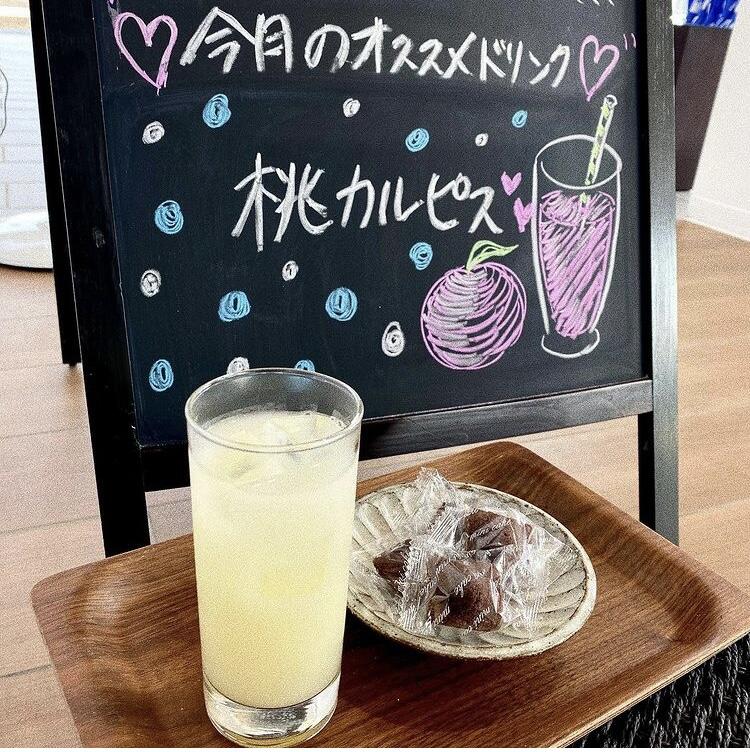 今月のオススメドリンク
桃カルピス